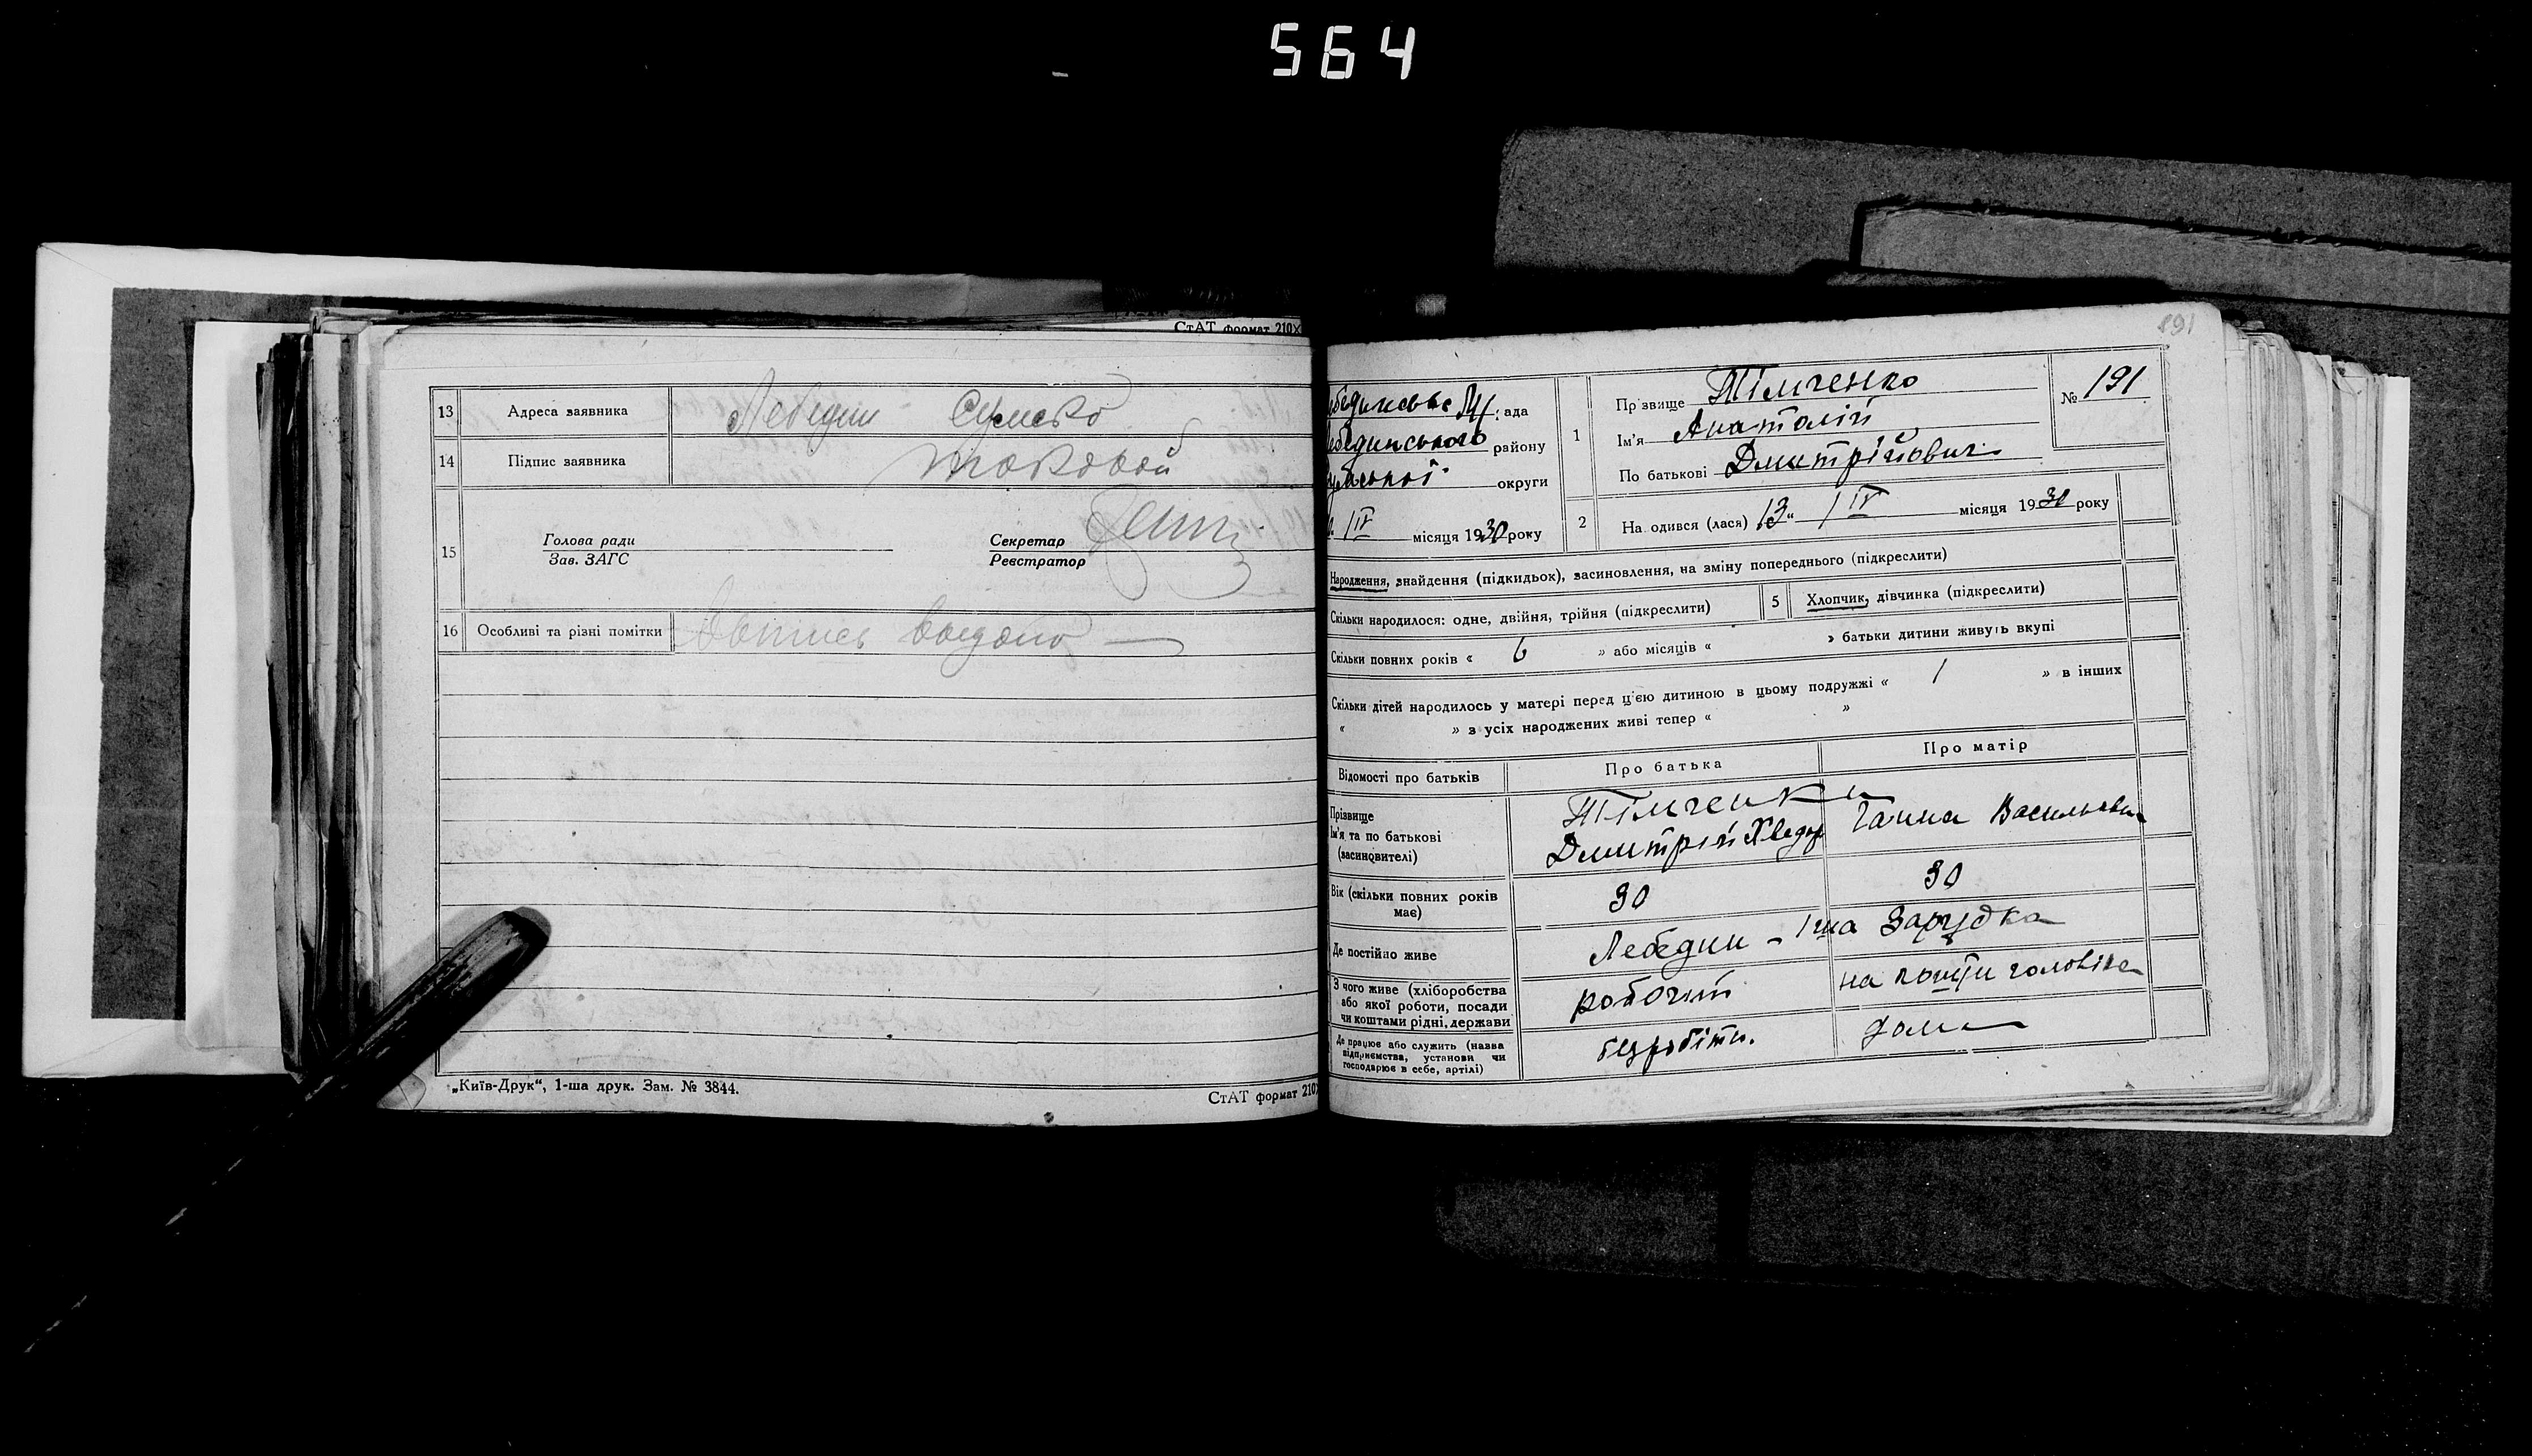 564
СтАТ формат 210×
13 Адреса заявника Лебедин Сумсько
14 Підпис заявника
15 Голова ради Зав. ЗАГС Секретар Реєстратор
16 Особливі та різні помітки
„Київ-Друк“, 1-ша друк. Зам. № 3844.
СтАТ формат 210
191
ада
району
округи
IV місяця 1930 року
1 Прізвище Тімченко
Ім'я Анатолій
По батькові Дмитрійович
№ 191
2 На одився (лася) 13 „ IV місяця 1930 року
Народження, знайдення (підкидьок), васиновлення, на зміну попереднього (підкреслити)
Скільки народилося: одне, двійня, трійня (підкреслити) 5 Хлопчик, дівчинка (підкреслити)
Скільки повних років « 6 » або місяців « » батьки дитини живуть вкупі
Скільки дітей народилось у матері перед ц'єю дитиною в цьому подружжі « 1 » в інших
« » з усіх народжених живі тепер « »
Відомості про батьків Про батька Про матір
Прізвище Тімченки
Ім'я та по батькові (васиновителі) Дмитрій Хведор Ганна Васильевн
Вік (скільки повних років має) 30 30
Де постійно живе Лебедин - 1 ша Зарудка
З чого живе (хліборобства або якої роботи, посади чи коштами рідні, держави робочий на кошти чоловіка
Де працює або служить (назва підприємства, установи чи господарює в себе, артілі) безробітн. дома